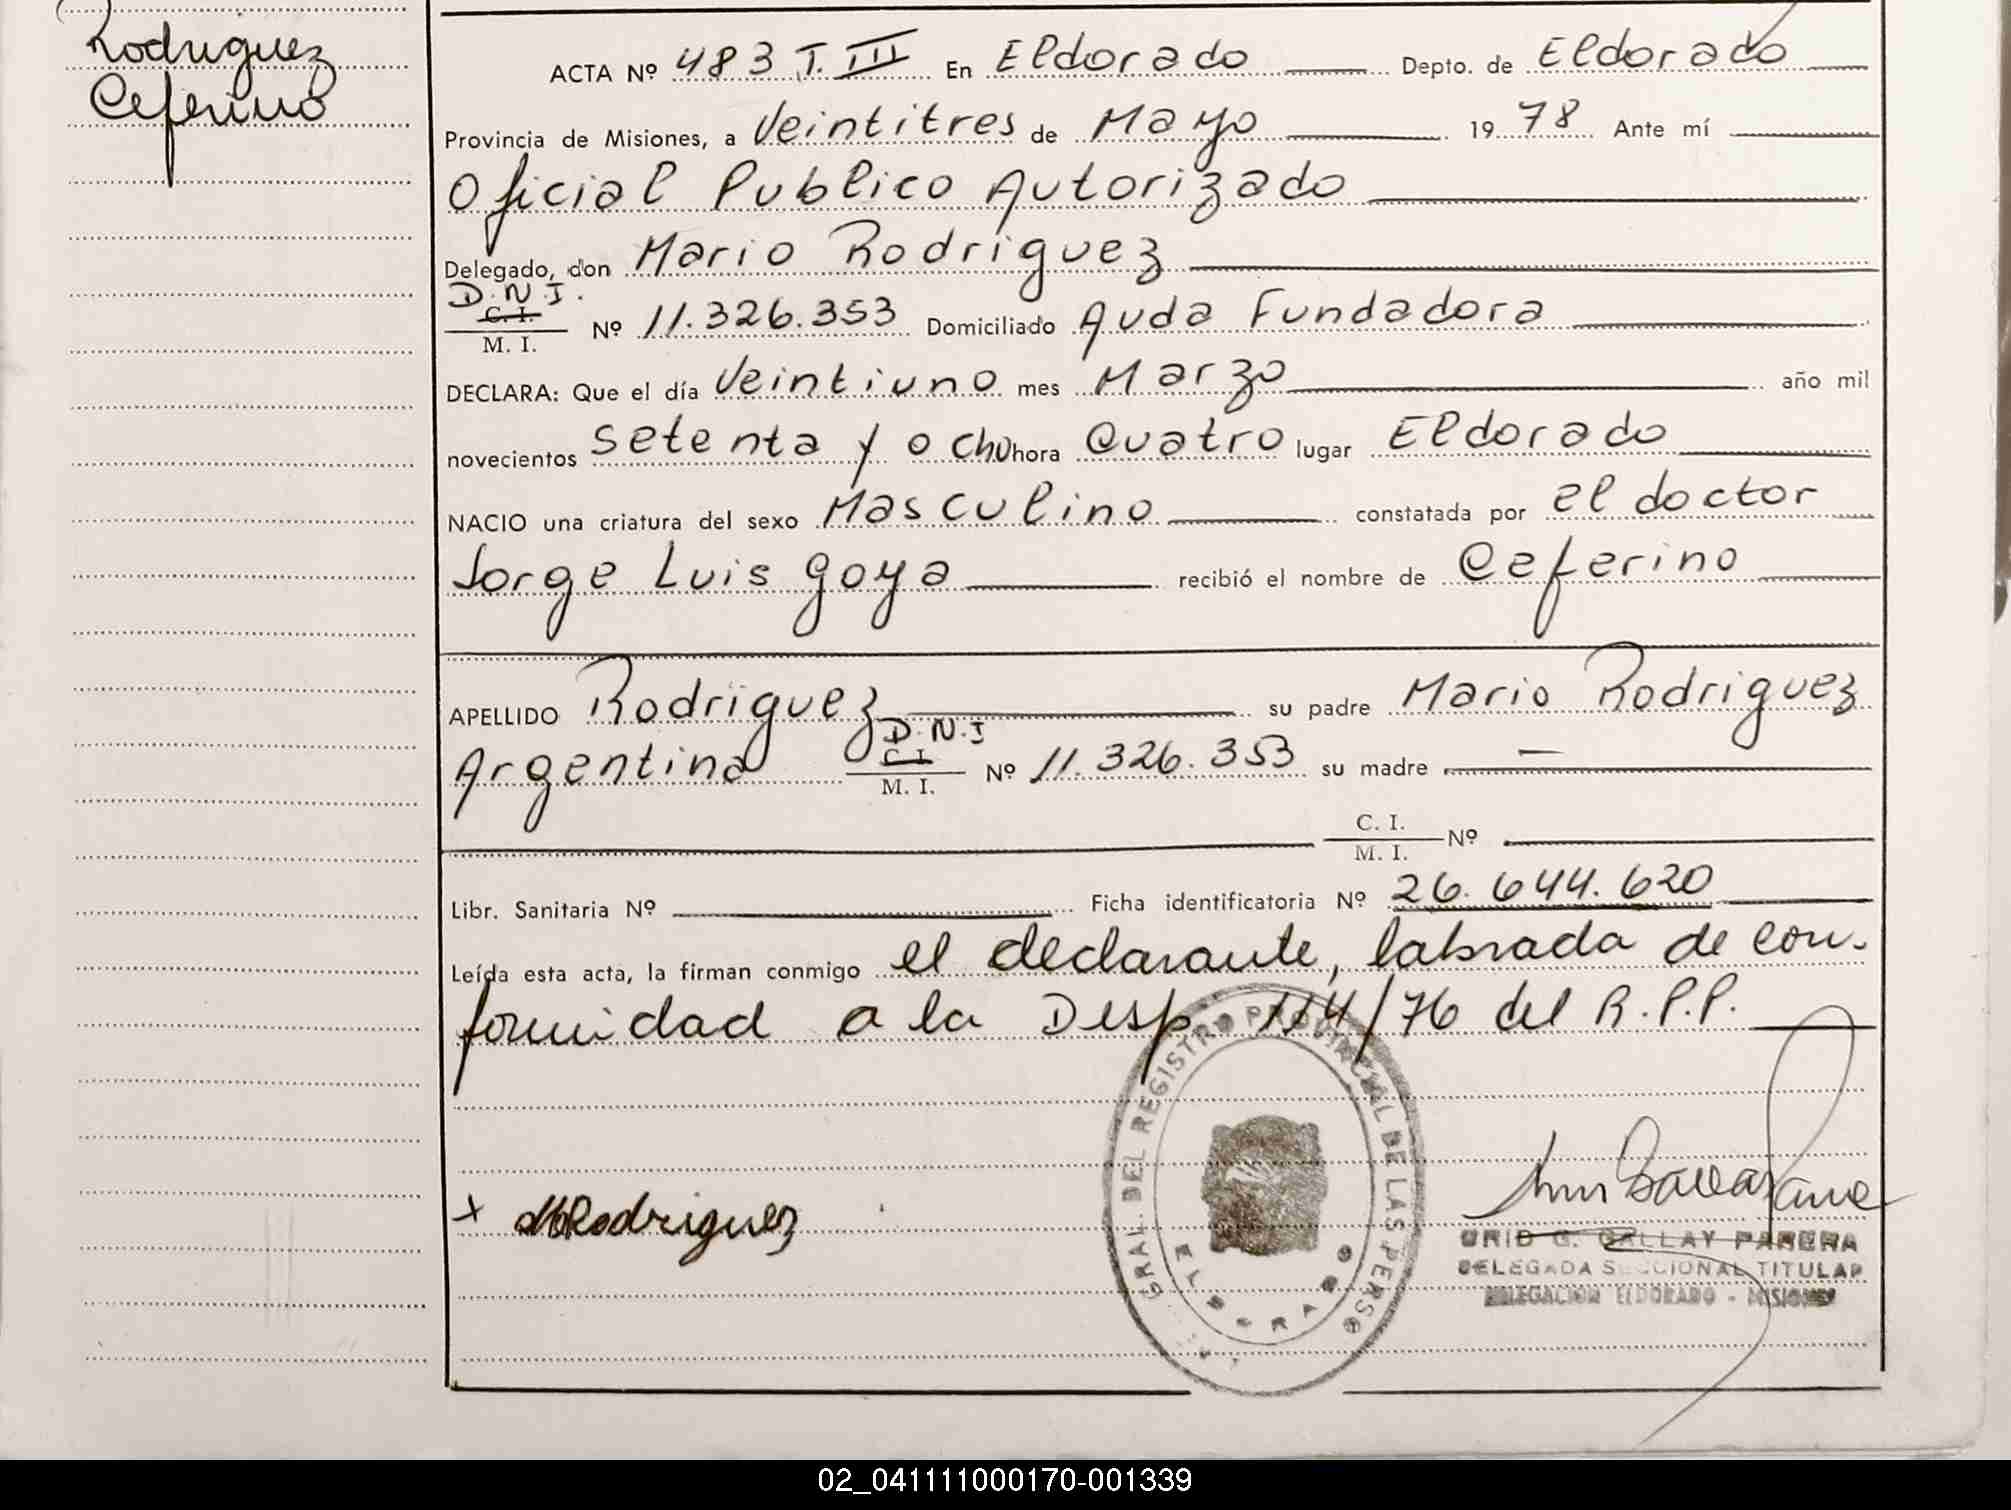 Rodriguez
Ceferino
ACTA Nº 483 T. III En Eldorado Depto. de Eldorado
Provincia de Misiones, a Veintitres de Mayo 19 78 Ante mí
Oficial Publico Autorizado
Delegado, don Mario Rodriguez
D.N.I.
C. I.
M. I. Nº 11.326.353 Domiciliado Avda Fundadora
DECLARA: Que el día Veintiuno mes Marzo año mil
novecientos Setenta y ocho hora Cuatro lugar Eldorado
NACIO una criatura del sexo Masculino constatada por el doctor
Jorge Luis Goya recibió el nombre de Ceferino
APELLIDO Rodriguez su padre Mario Rodriguez
D.N.I
C. I.
Argentina M. I. Nº 11.326.353 su madre —
C. I.
M. I. Nº
Libr. Sanitaria Nº Ficha identificatoria Nº 26.644.620
Leída esta acta, la firman conmigo el declarante, labrada de con-
formidad a la Desp 114/76 del R.P.P.
GRAL. DEL REGISTRO PROVINCIAL DE LAS PERSO
ELDORADO
+ MRodriguez
G. GALLAY PARERA
DELEGADA SECCIONAL TITULAR
DELEGACION ELDORADO - MISIONES
02_041111000170-001339